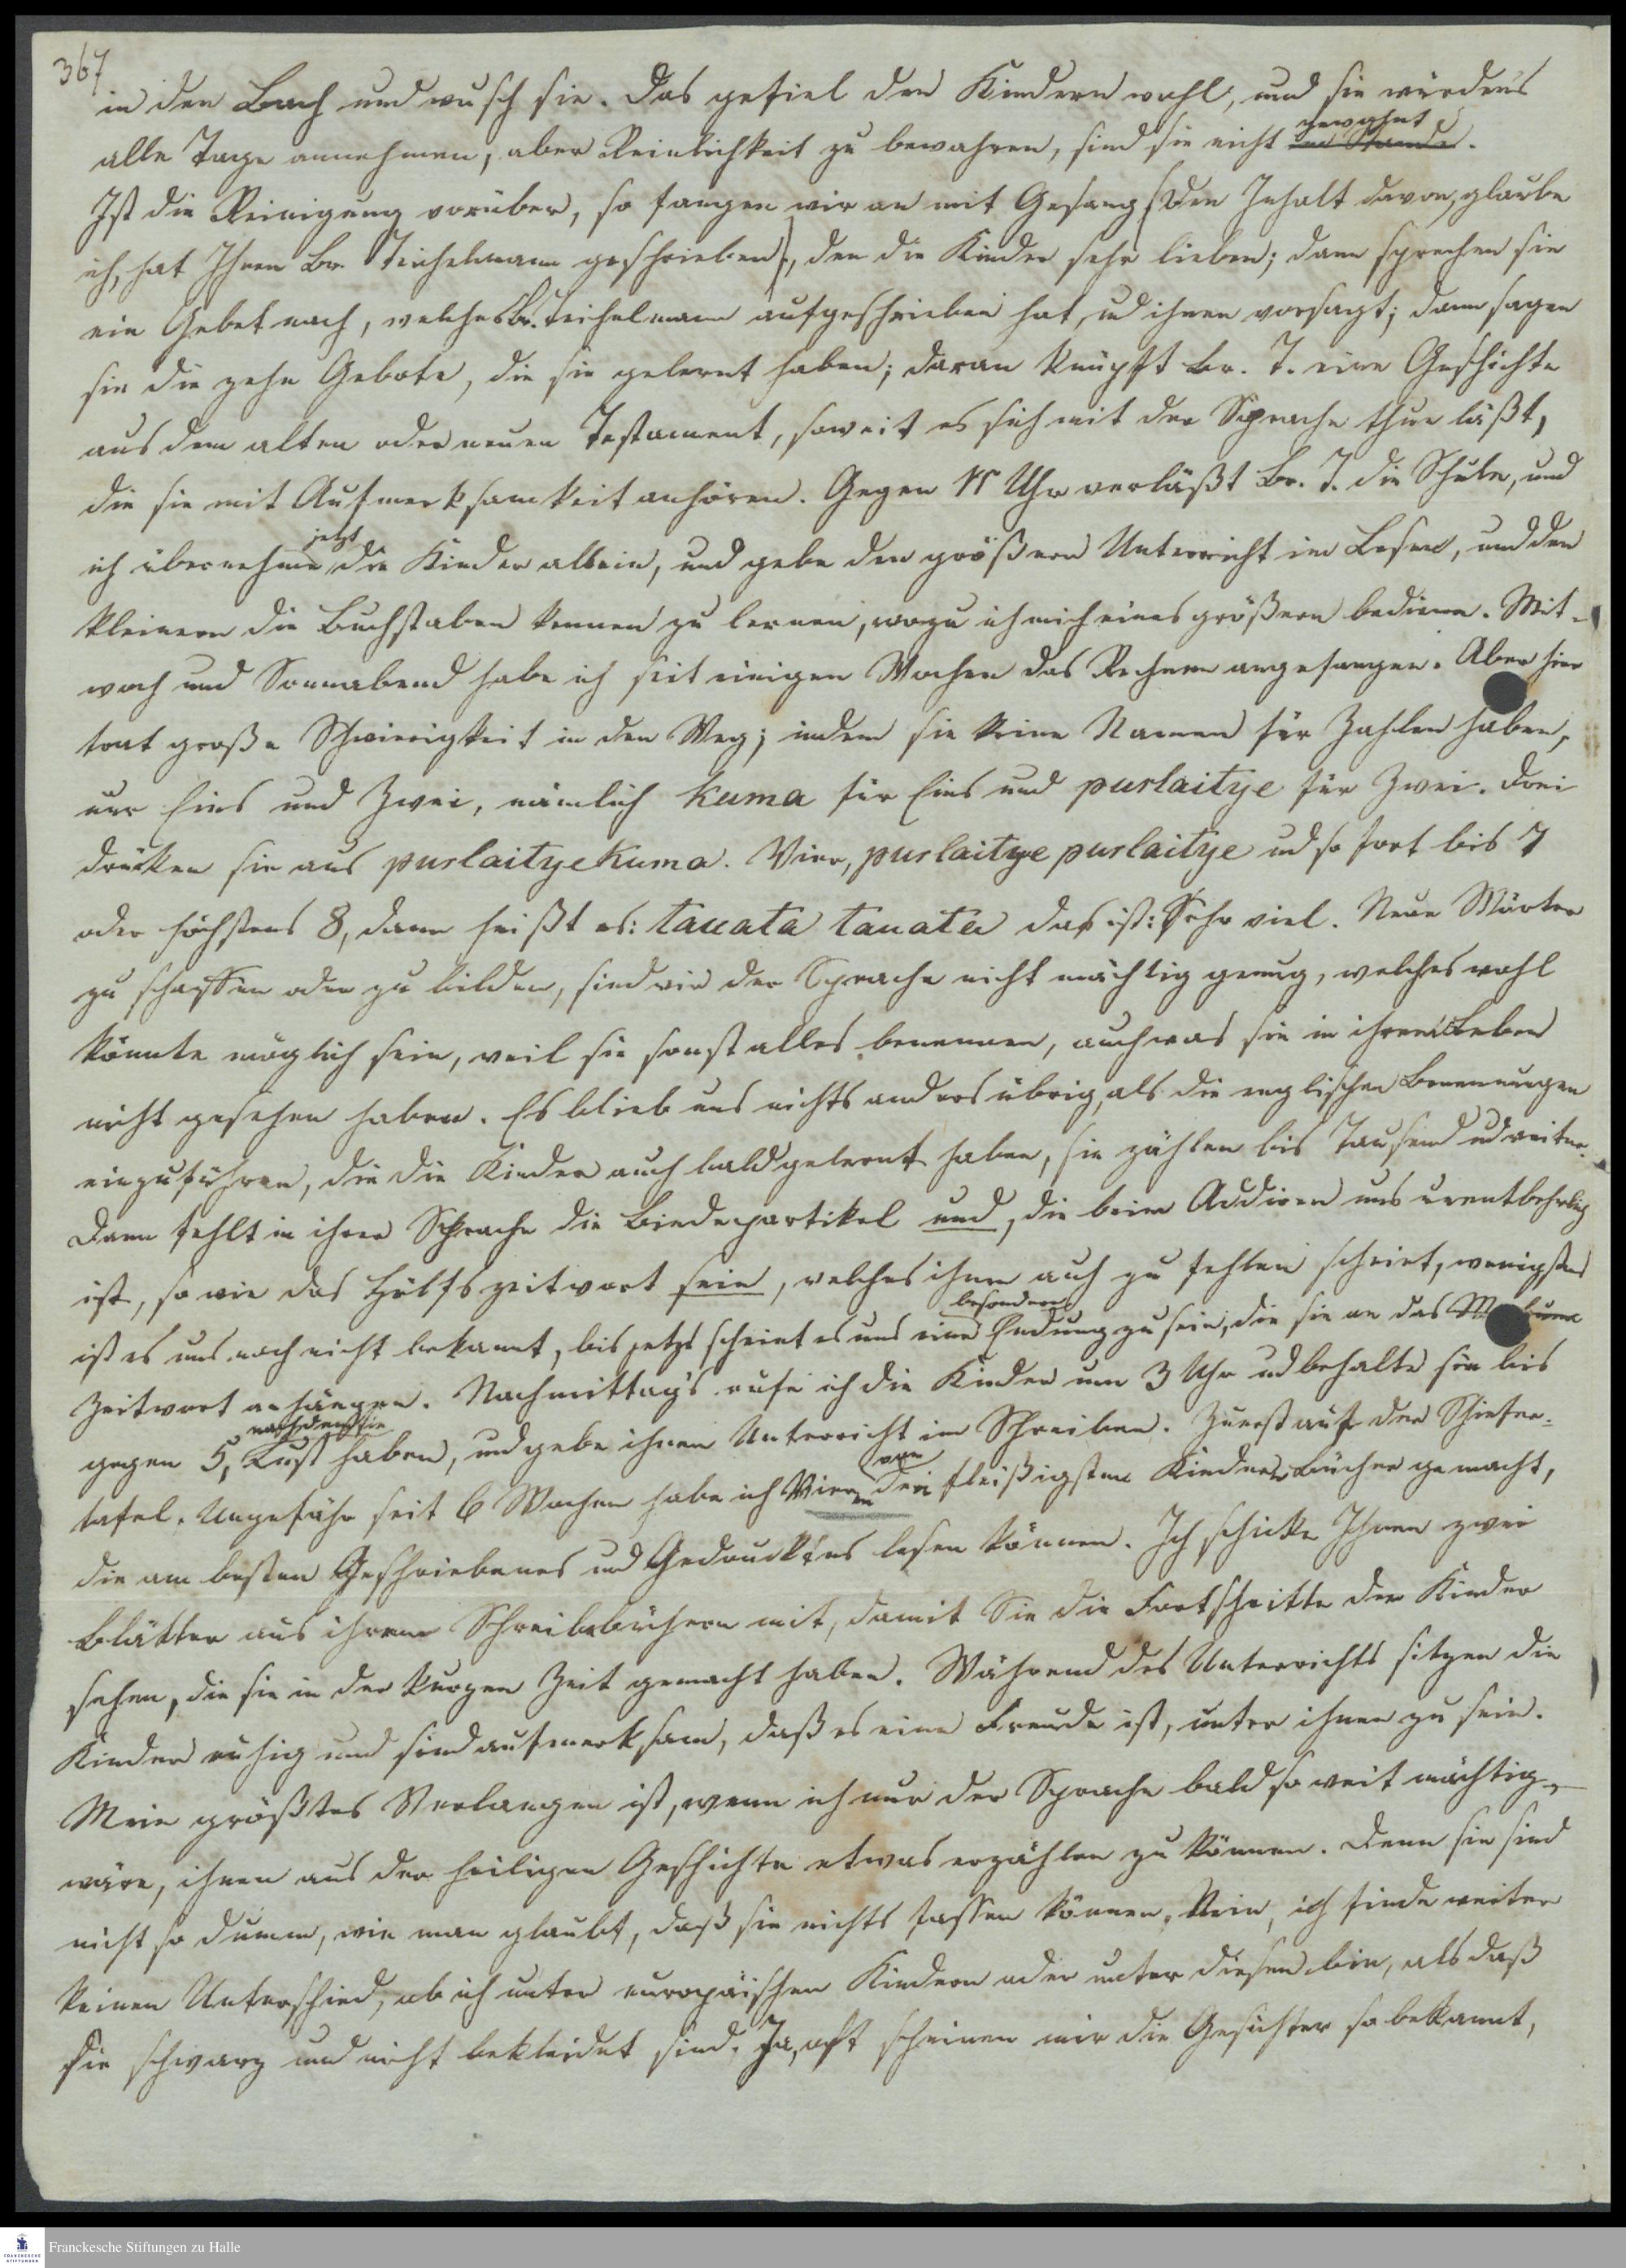 367
in den Bach und wusch sie. Das gefiel den Kindern wohl, und sie würden's
alle Tage annehmen, aber Reinlichkeit zu bewahren, sind sie nicht gewohnt im Stande.
Ist die Reinigung vorüber, so fangen wir an mit Gesang (Den Inhalt davon, glaube
ich, hat Ihnen Br. Teichelmann geschrieben), den die Kinder sehr lieben; dann sprechen sie
ein Gebet nach, welches Br. Teichelmann aufgeschrieben hat, ud ihnen vorsagt; dann sagen
sie die zehn Gebote, die sie gelernt haben; daran knüpft Br. T. eine Geschichte
aus dem alten oder neuen Testament, soweit es sich mit der Sprache thun läßt,
die sie mit Aufmerksamkeit anhören. Gegen 11 Uhr verläßt Br. T. die Schule, und
ich übernehme jetzt die Kinder allein, und gebe den größern Unterricht im Lesen, und den
kleinern die Buchstaben kennen zu lernen, wozu ich mich eines größern bediene. Mit-
woch und Sonnabend habe ich seit einigen Wochen das Rechnen angefangen. Aber hier
trat große Schwierigkeit in den Weg; indem sie keine Namen für Zahlen haben,
nur Eins und Zwei, nämlich Kuma für Eins und purlaitye für Zwei. Drei
drücken sie aus purlaityekuma. Vier, purlaitye purlaitye ud so fort bis 7
oder höchstens 8, dann heißt es: tauata tauata das ist: Sehr viel. Neue Wörter
zu schaffen oder zu bilden, sind wir der Sprache nicht mächtig genug, welches wohl
könnte möglich sein, weil sie sonst alles benennen, auch was sie in ihrem Leben
nicht gesehen haben. Es blieb uns nichts anders übrig, als die englischen Benennungen
einzuführen, die die Kinder auch bald gelernt haben, sie zählen bis Tausend ud weiter.
Dann fehlt in ihrer Sprache die Bindepartikel und, die beim Addiren uns unentbehrlich
ist, so wie das Hülfszeitwort sein, welches ihnen auch zu fehlen scheint, wenigstens
ist es uns noch nicht bekannt, bis jetzt scheint es uns eine besondere Endung zu sein, die sie an das
Zeitwort anhängen. Nachmittag's rufe ich die Kinder um 3 Uhr ud behalte sie bis
gegen 5, nachdem sie Lust haben, und gebe ihnen Unterricht im Schreiben. Zuerst auf der Schiefer-
tafel. Ungefähr seit 6 Wochen habe ich Vieren von den fleißigsten Kindern Bücher gemacht,
die am besten Geschriebenes ud Gedrucktes lesen können. Ich schicke Ihnen zwei
Blätter aus ihren Schreibebüchern mit, damit Sie die Fortschritte der Kinder
sehen, die sie in der kurzen Zeit gemacht haben. Während des Unterrichts sitzen die
Kinder ruhig und sind aufmerksam, daß es eine Freude ist, unter ihnen zu sein.
Mein größtes Verlangen ist, wenn ich nur der Sprache bald so weit mächtig
wäre, ihnen aus der heiligen Geschichte etwas erzählen zu können. Denn sie sind
nicht so dumm, wie man glaubt, daß sie nichts fassen können. Nein, ich finde weiter
keinen Unterschied, ob ich unter europäischen Kindern oder unter diesen bin, als daß
sie schwarz und nicht bekleidet sind. Ja, oft scheinen mir die Gesichter so bekannt,
Franckesche Stiftungen zu Halle